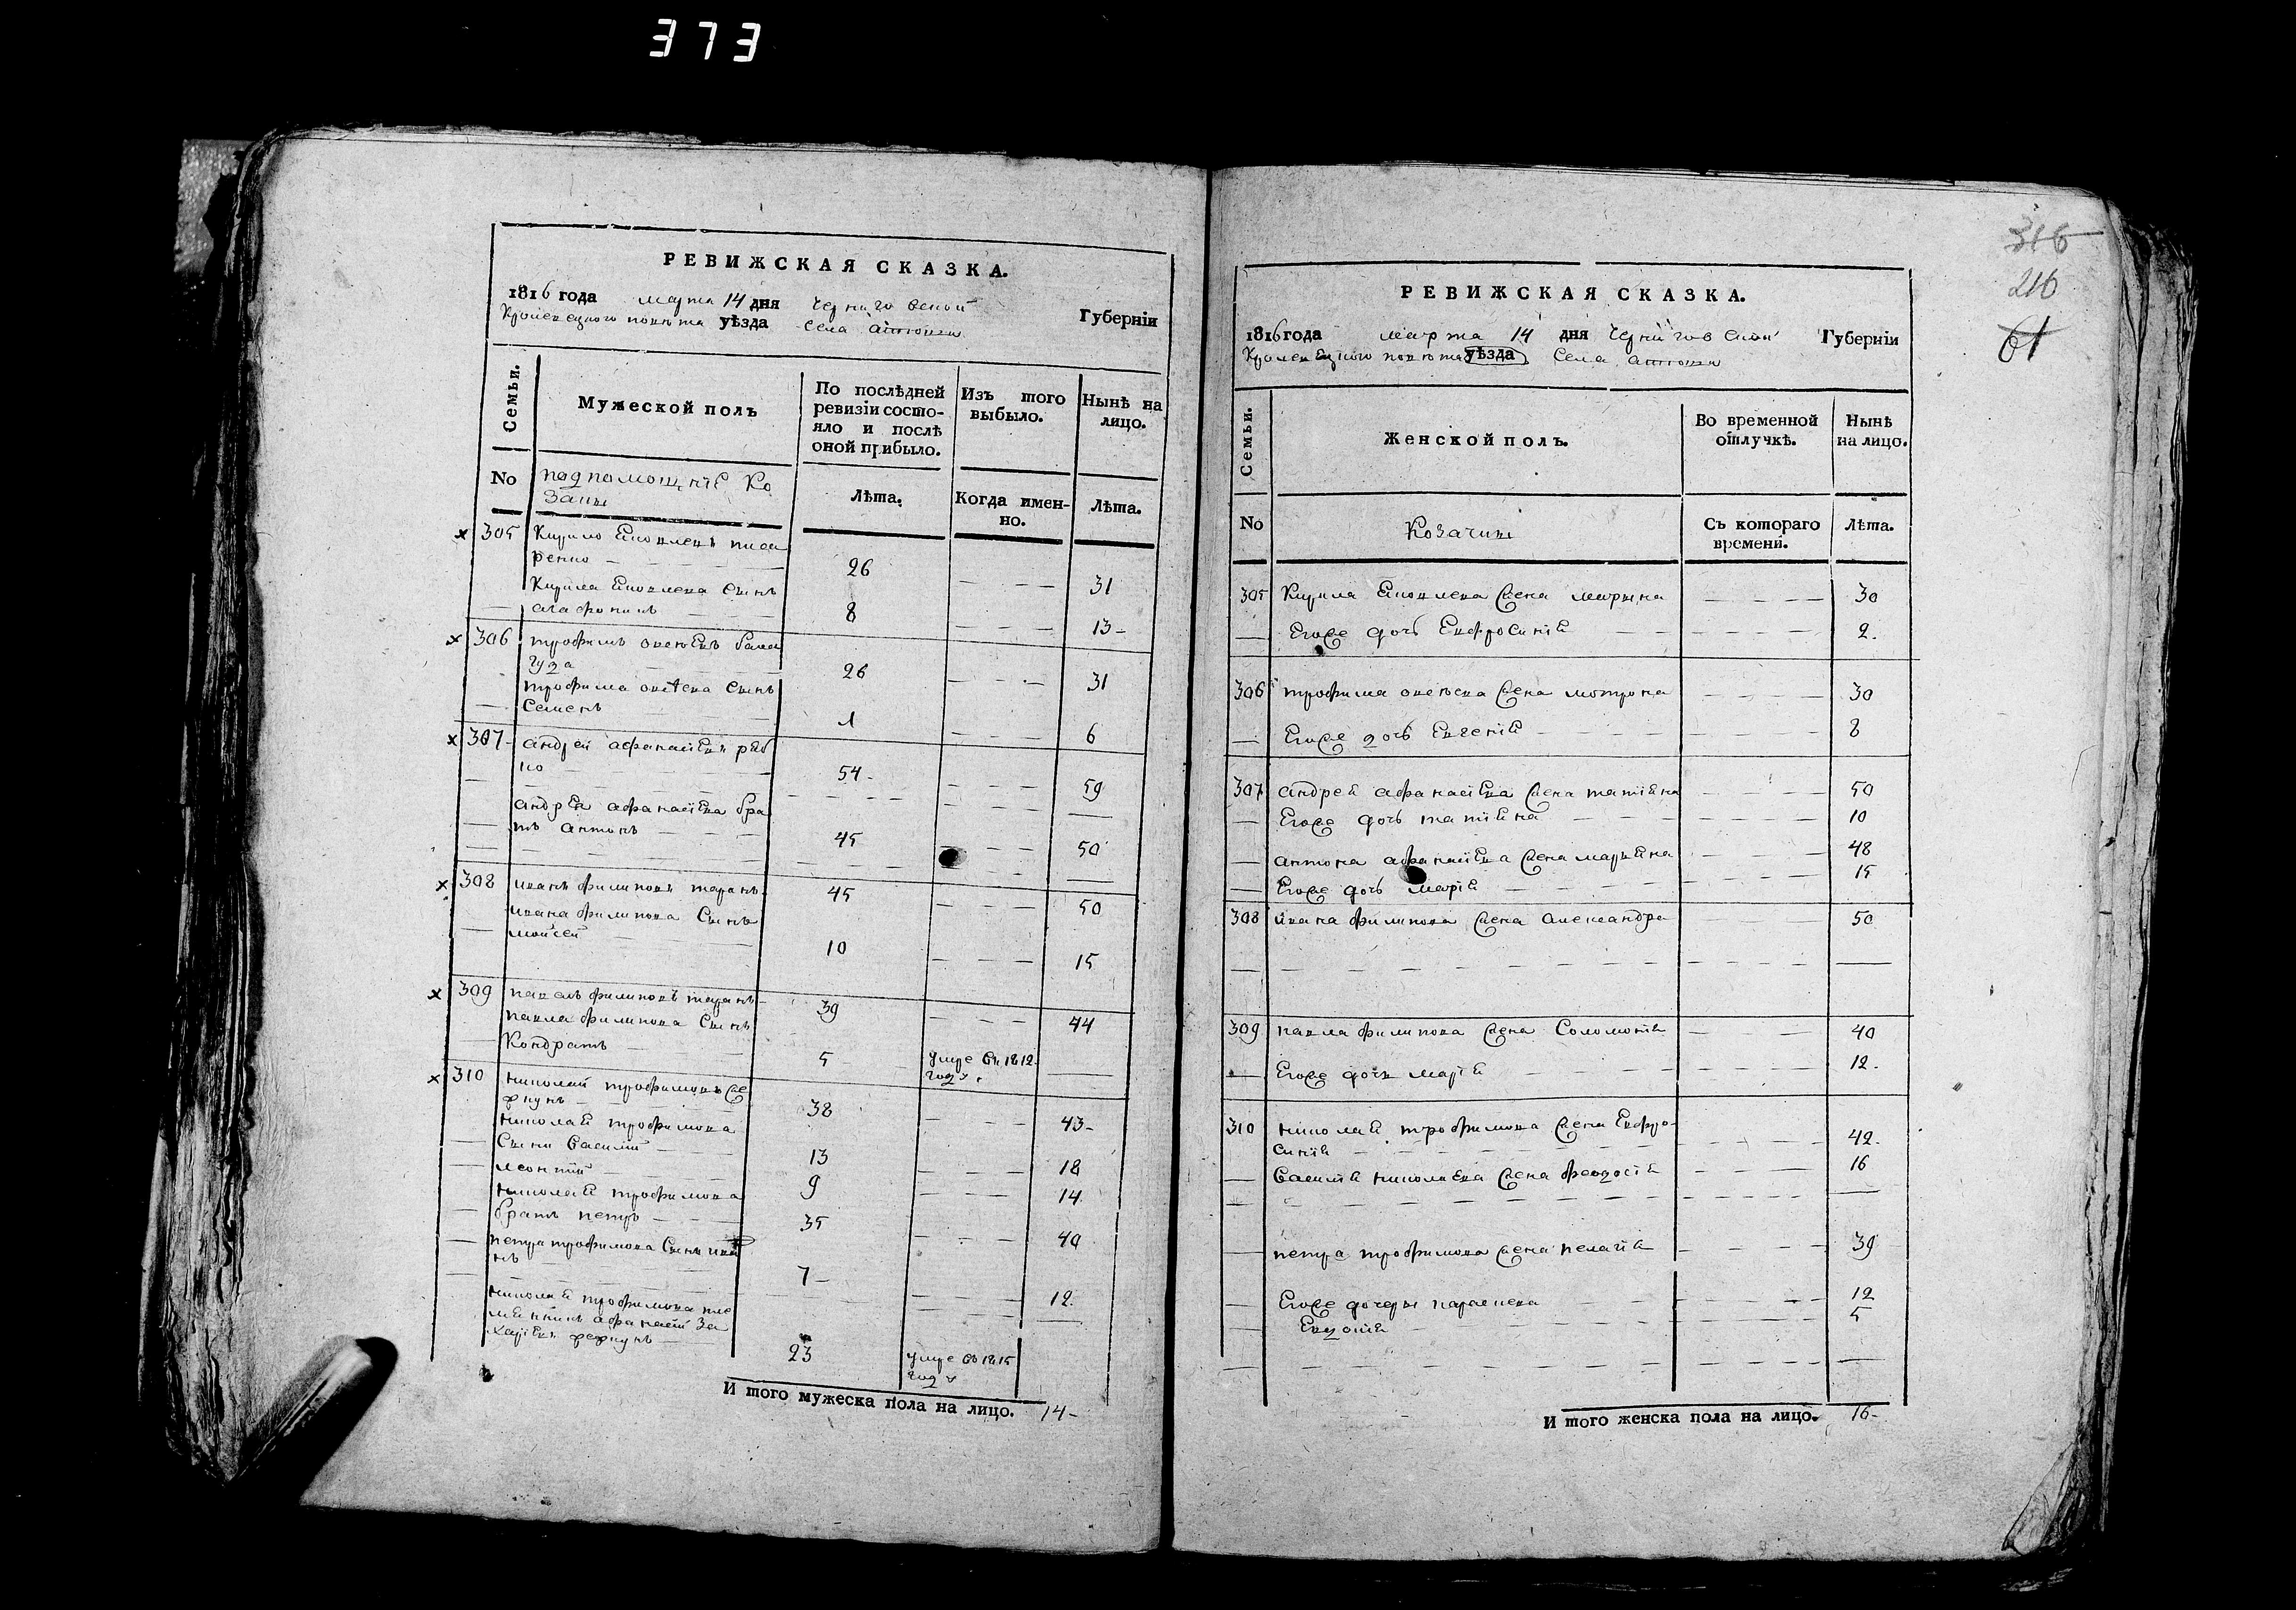 373
РЕВИЖСКАЯ СКАЗКА.
1816 года марта 14 дня Черниговской Губерніи
Кролевецкого повѣта уѣзда Села
Семьи.
Мужеской полъ
По послѣдней ревизіи состояло и послѣ оной прибыло.
Изъ того выбыло.
Нынѣ на лицо.
No
подпомощніе Ко
заки
Лѣта.
Когда именно.
Лѣта.
305 Кирило Яковлевъ писа
ренко 26 31
Кирила Яковлева Сынъ
агафонъ 8 13
306 трофимъ овсѣевъ
26 31
трофима овсѣева Сынъ
Семенъ 1 6
307 андрей афанасіевъ ряб
ко 54 59
андрея афанасіева бра
тъ антонъ 45 50
308 иванъ филиповъ таранъ 45 50
ивана филипова Сынъ
мойсей 10 15
309 павелъ филиповъ таранъ 39 44
павла филипова Сынъ
Кондратъ 5 умре въ 1812 году
310 николай трофимовъ фе
ркунъ 38 43
николая трофимова
Сыни василий 13 18
леонтий 9 14
николая трофимова
братъ петръ 35 40
петра трофимова Сынъ ива
нъ 7 12
николая трофимова пле
мянникъ афанасій за
харіевъ феркунъ 23 умре въ 1815 году
И того мужеска пола на лицо. 14
316
216
61
РЕВИЖСКАЯ СКАЗКА.
1816 года марта 14 дня Черниговской Губерніи
Кролевецкого повѣта уѣзда Села
Семьи.
Женской полъ.
Во временной отлучкѣ.
Нынѣ на лицо.
No
Козачки
Съ котораго времени.
Лѣта.
305 Кирила Яковлева жена марина 30
Егоже дочь Евфросинія 2.
306 трофима овсѣева жена мотрона 30
Егоже дочь Евгенія 8
307 андрея афанасіева жена татіяна 50
Егоже дочь татіяна 10
антона афанасіева жена маріяна 48
Егоже дочь марія 15
308 ивана филипова жена александра 50
309 павла филипова жена Соломонія 40
Егоже дочь марія 12.
310 николая трофимова жена Евфро-
синія 42.
василія николаева жена феодосія 16
петра трофимова жена пелагія 39
Егоже дочеры параскева 12
Евдокія 5
И того женска пола на лицо. 16